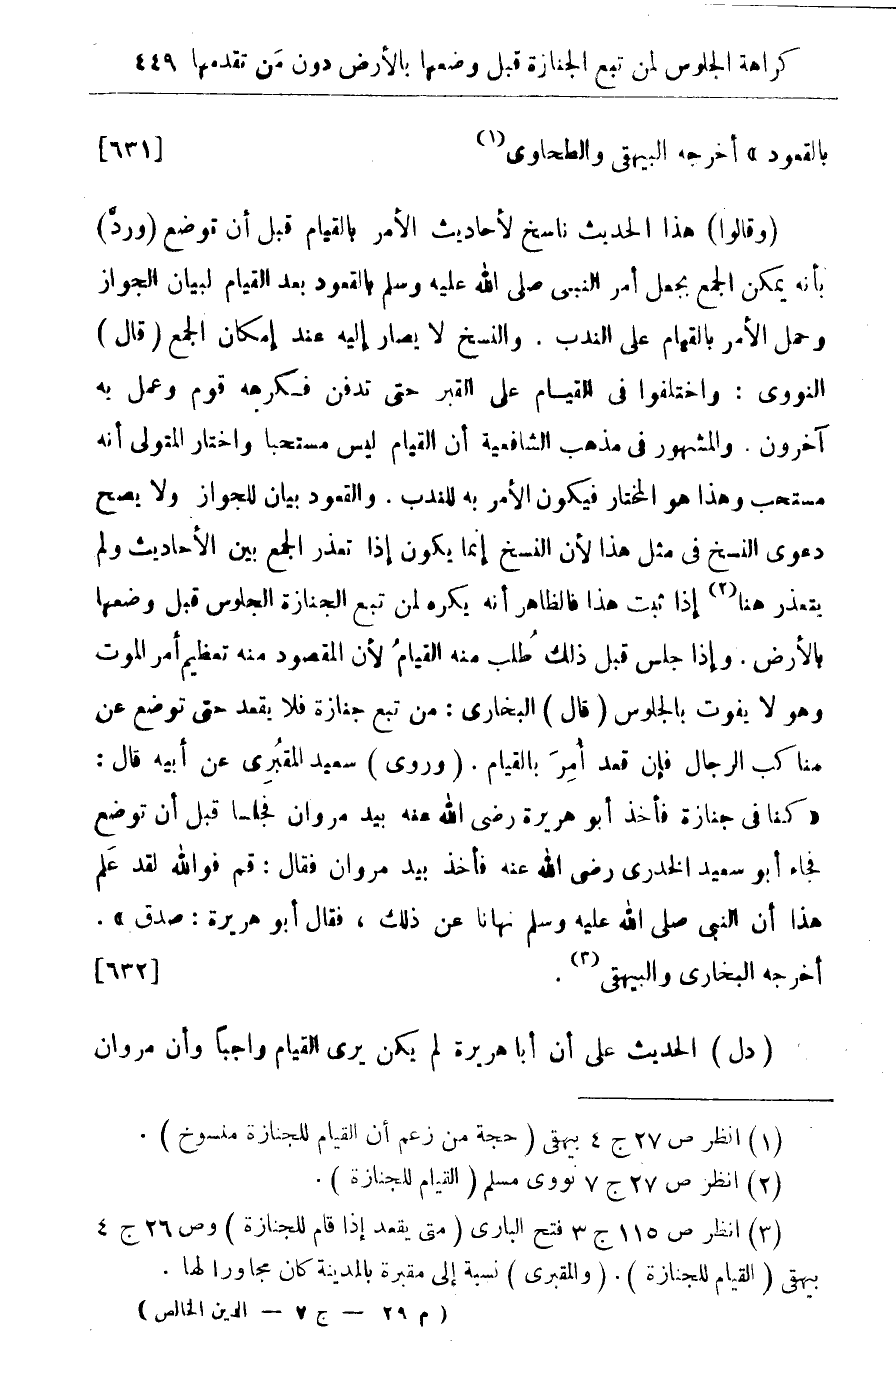 كراهة الجلوس لمن تبع الجنازة قبل وضعها بالأرض دون مَن تقدمها ٤٤٩
بالقعود » أخرجه البيهقى والطحاوى(١) [٦٣١]
(وقالوا) هذا الحديث ناسخ لأحاديث الأمر بالقيام قبل أن توضع (وردَّ)
بأنه يمكن الجمع بجعل أمر النبى صلى الله عليه وسلم بالقعود بعد القيام لبيان الجواز
وحمل الأمر بالقيام على الندب . والنسخ لا يصار إليه عند إمكان الجمع ( قال )
النووى : واختلفوا فى القيام على القبر حتى تدفن فكرهه قوم وعمل به
آخرون . والمشهور فى مذهب الشافعية أن القيام ليس مستحبا واختار المتولى أنه
مستحب وهذا هو المختار فيكون الأمر به للندب . والقعود بيان للجواز ولا يصح
دعوى النسخ فى مثل هذا لأن النسخ إنما يكون إذا تعذر الجمع بين الأحاديث ولم
يتعذر هنا(٢) إذا ثبت هذا فالظاهر أنه يكره لمن تبع الجنازة الجلوس قبل وضعها
بالأرض . وإذا جلس قبل ذلك طُلب منه القيامُ لأن المقصود منه تعظيم أمر الموت
وهو لا يفوت بالجلوس ( قال ) البخارى : من تبع جنازة فلا يقعد حتى توضع عن
مناكب الرجال فإن قعد أُمِرَ بالقيام . ( وروى ) سعيد المقبُرِى عن أبيه قال :
« كنا فى جنازة فأخذ أبو هريرة رضى الله عنه بيد مروان فجلسا قبل أن توضع
فجاء أبو سعيد الخدرى رضى الله عنه فأخذ بيد مروان فقال : قم فوالله لقد عَلم
هذا أن النبى صلى الله عليه وسلم نهانا عن ذلك ، فقال أبو هريرة : صدق » .
أخرجه البخارى والبيهقى(٣) . [٦٣٢]
( دل ) الحديث على أن أبا هريرة لم يكن يرى القيام واجباً وأن مروان
(١) انظر ص ٢٧ ج ٤ بيهقى ( حجة من زعم أن القيام للجنازة منسوخ ) .
(٢) انظر ص ٢٧ ج ٧ نووى مسلم ( القيام للجنازة ) .
(٣) انظر ص ١١٥ ج ٣ فتح البارى ( متى يقعد إذا قام للجنازة ) وص ٢٦ ج ٤
بيهقى ( القيام للجنازة ) . ( والمقبرى ) نسبة إلى مقبرة بالمدينة كان مجاورا لها .
( م ٢٩ — ج ٧ — الدين الخالص )